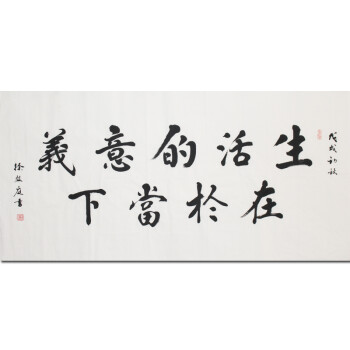 戊戌初秋
生活的意義
在於當下
徐 書